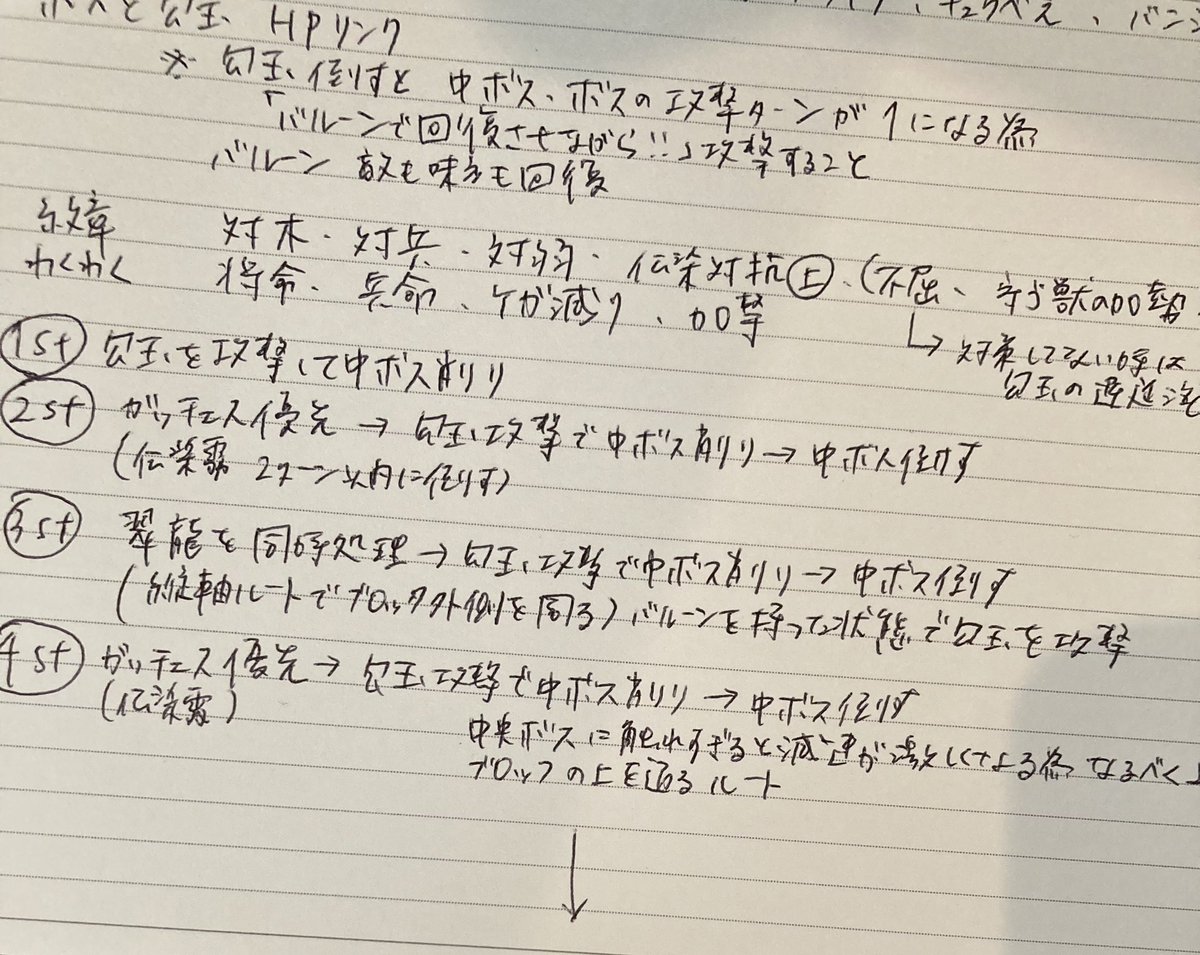 ボスと勾玉 HPリンク 、バン
※ 勾玉倒すと 中ボス、ボスの攻撃ターンが1になる為
「バルーンで回復させながら!!」攻撃すること
バルーン 敵も味方も回復
紋章 対木・対兵・対弱・伝染対抗上、(不屈、守ら獣の加勢
わくわく 将命、兵命、ケガ減り、加撃
↳ 対策してない時は
勾玉の遅延
1st 勾玉を攻撃して中ボス削り
2st ガッチェス優先 → 勾玉攻撃で中ボス削り → 中ボス倒す
(伝染霧 2ターン以内に倒す)
3st 翠龍を同時処理 → 勾玉攻撃で中ボス削り → 中ボス倒す
(縦軸ルートでブロック外側を回る) バルーンを持った状態で勾玉を攻撃
4st ガッチェス優先 → 勾玉攻撃で中ボス削り → 中ボス倒す
(伝染霧)
中央ボスに触れすぎると減速が激しくなる為 なるべく
ブロックの上を通るルート
↓